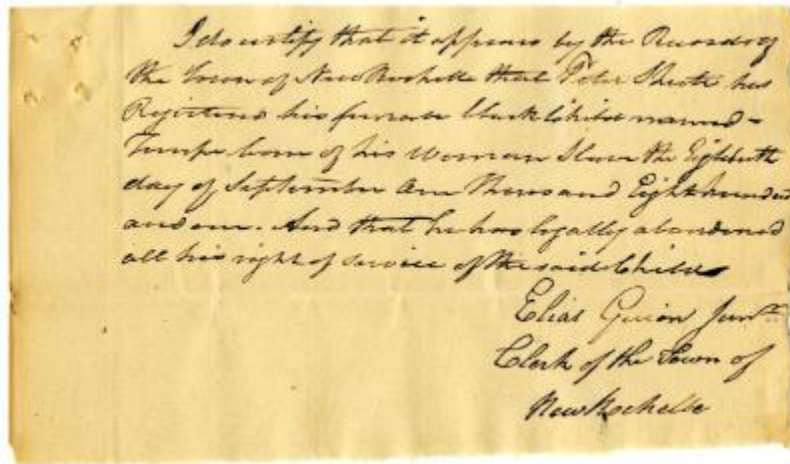 I do certify that it appears by the Records of
the Town of New Rochelle that Peter has
Registered his female black Child named
born of his Woman Slave the Eighteenth
day of September One Thousand Eight hundred
and one. And that he has legally abandoned
all his right of Service of the said Child
Elias Guion Junr.
Clerk of the Town of
New Rochelle